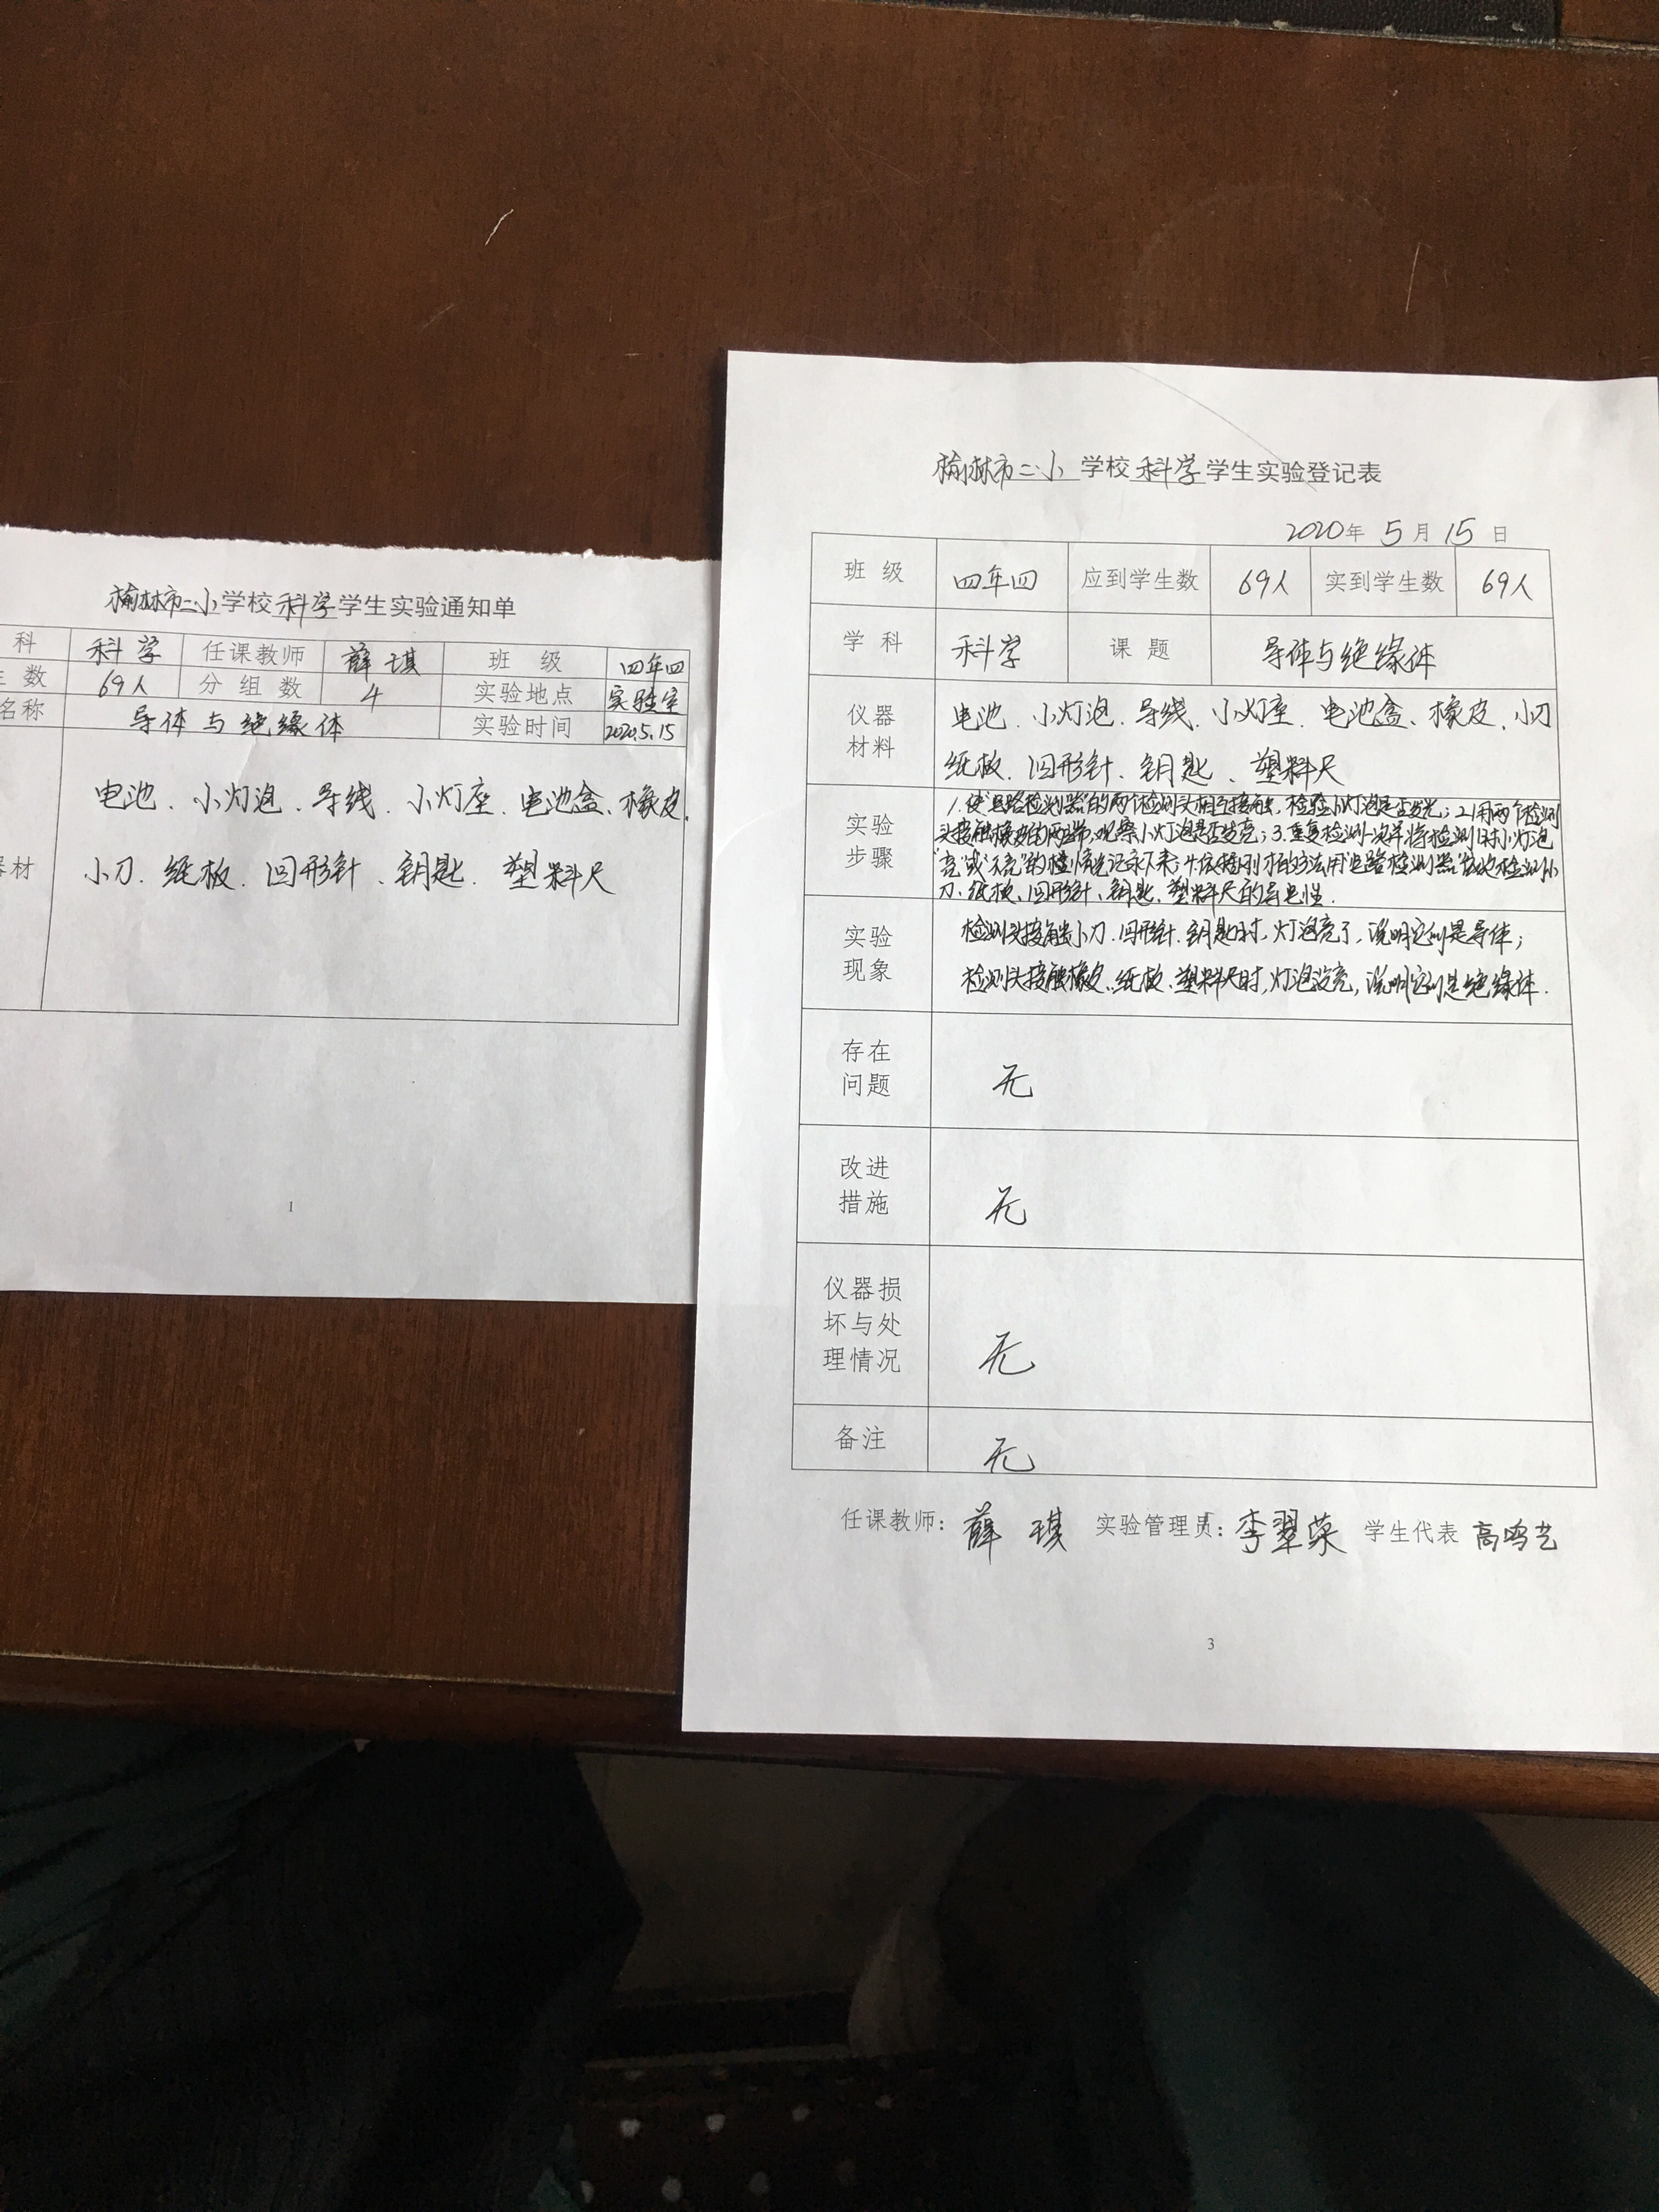 榆林市二小学校科学学生实验通知单
科 科学 任课教师 薛琪 班级 四年四
生数 69人 分组数 4 实验地点 实验室
名称 导体与绝缘体 实验时间 2020.5.15
器材
电池、小灯泡、导线、小灯座、电池盒、橡皮、
小刀、纸板、回形针、钥匙、塑料尺
1
榆林市二小学校科学学生实验登记表
2020年5月15日
班级 四年四 应到学生数 69人 实到学生数 69人
学科 科学 课题 导体与绝缘体
仪器
材料
电池、小灯泡、导线、小灯座、电池盒、橡皮、小刀
纸板、回形针、钥匙、塑料尺
实验
步骤
1.使"电路检测器"的两个检测头相互接触,检验小灯泡是否发光;2.用两个检测
头接触橡皮的两端,观察小灯泡是否发亮;3.重复检测一次并将检测时小灯泡
"亮"或"不亮"的情况记录下来;4.依据刚才的方法用"电路检测器"依次检测小
刀、纸板、回形针、钥匙、塑料尺的导电性.
实验
现象
检测头接触小刀、回形针、钥匙时,灯泡亮了,说明它们是导体;
检测头接触橡皮、纸板、塑料尺时,灯泡没亮,说明它们是绝缘体.
存在
问题
无
改进
措施
无
仪器损
坏与处
理情况
无
备注 无
任课教师:薛琪 实验管理员:李翠荣 学生代表 高鸣艺
3